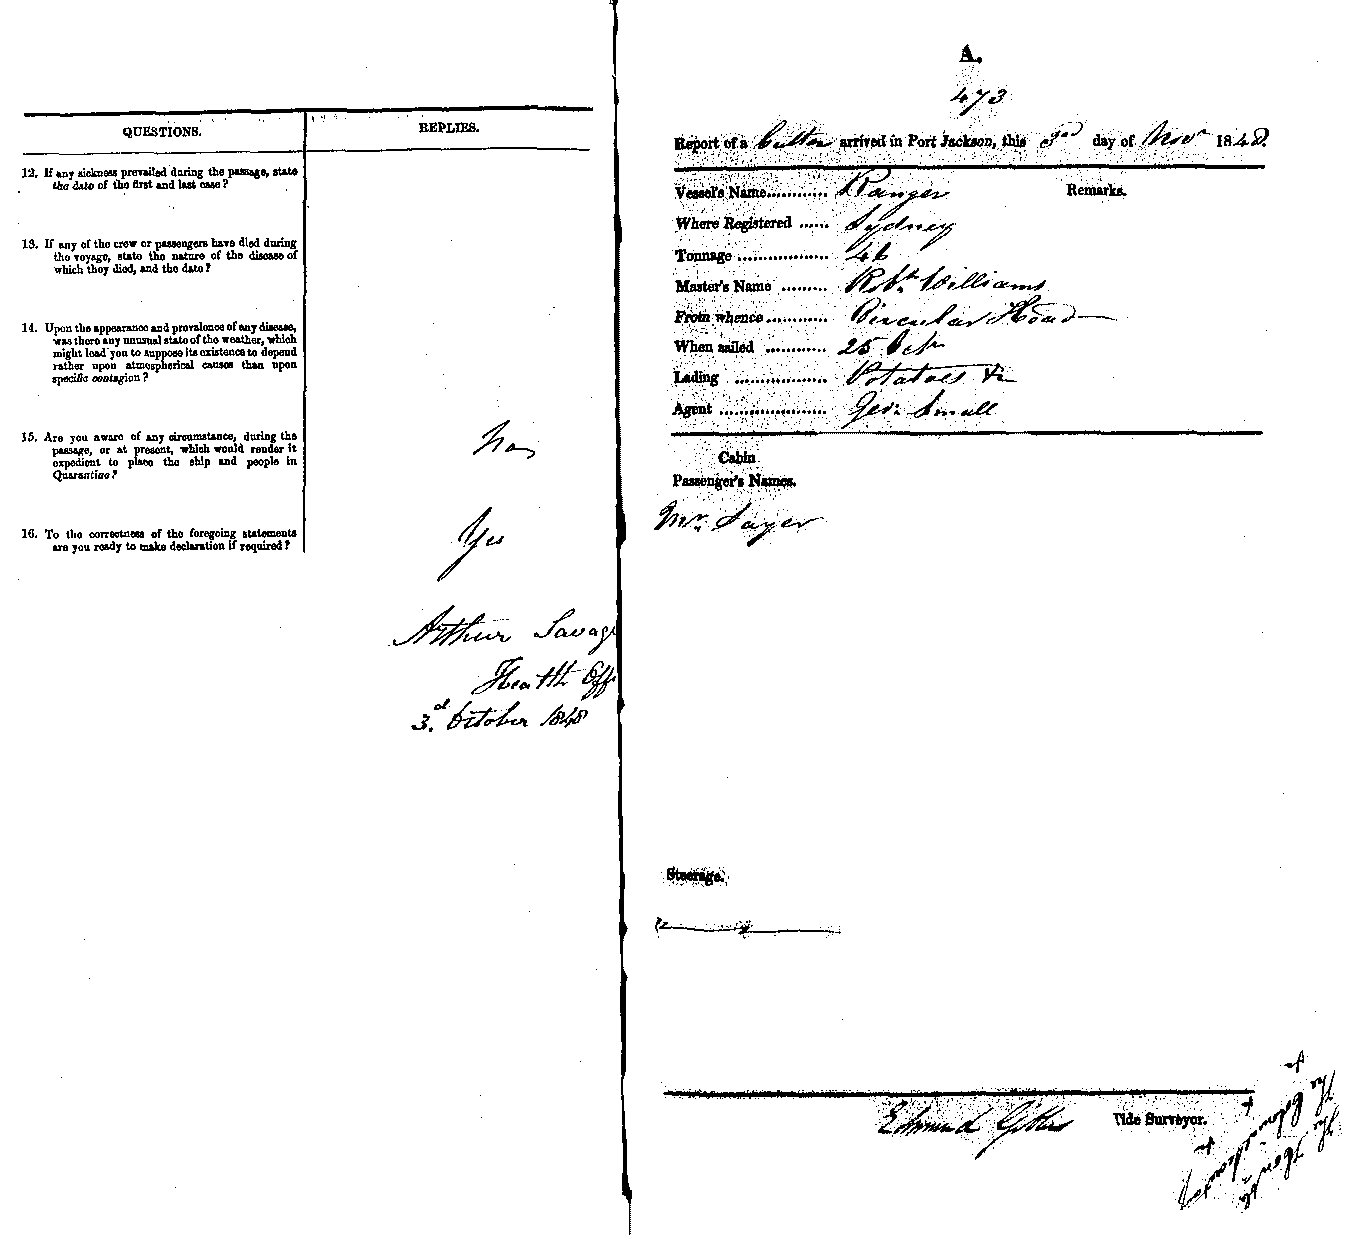 QUESTIONS.
REPLIES.
12. If any sickness prevailed during the passage, state
the date of the first and last case?
13. If any of the crew or passengers have died during
the voyage, state the nature of the disease of
which they died, and the date?
14. Upon the appearance and prevalence of any disease,
was there any unusual state of the weather, which
might lead you to suppose its existence to depend
rather upon atmospherical causes than upon
specific contagion?
15. Are you aware of any circumstance, during the
passage, or at present, which would render it
expedient to place the ship and people in
Quarantine?
No
16. To the correctness of the foregoing statements
are you ready to make declaration if required?
Yes
Arthur Savage
Health Off
3d. October 1848
A.
473
Report of a Cutter arrived in Port Jackson, this 3rd day of Novr 1848.
Vessel's Name............ Ranger
Remarks.
Where Registered ...... Sydney
Tonnage .................. 46
Master's Name ......... Robt. Williams
From whence............ Circular Head
When sailed ............ 25 Oct
Lading .................. Potatoes &c
Agent ..................... Geo. Small
Cabin
Passenger's Names.
Mr. Sayer
Steerage.
Edmund Tide Surveyor.
The Hon
The